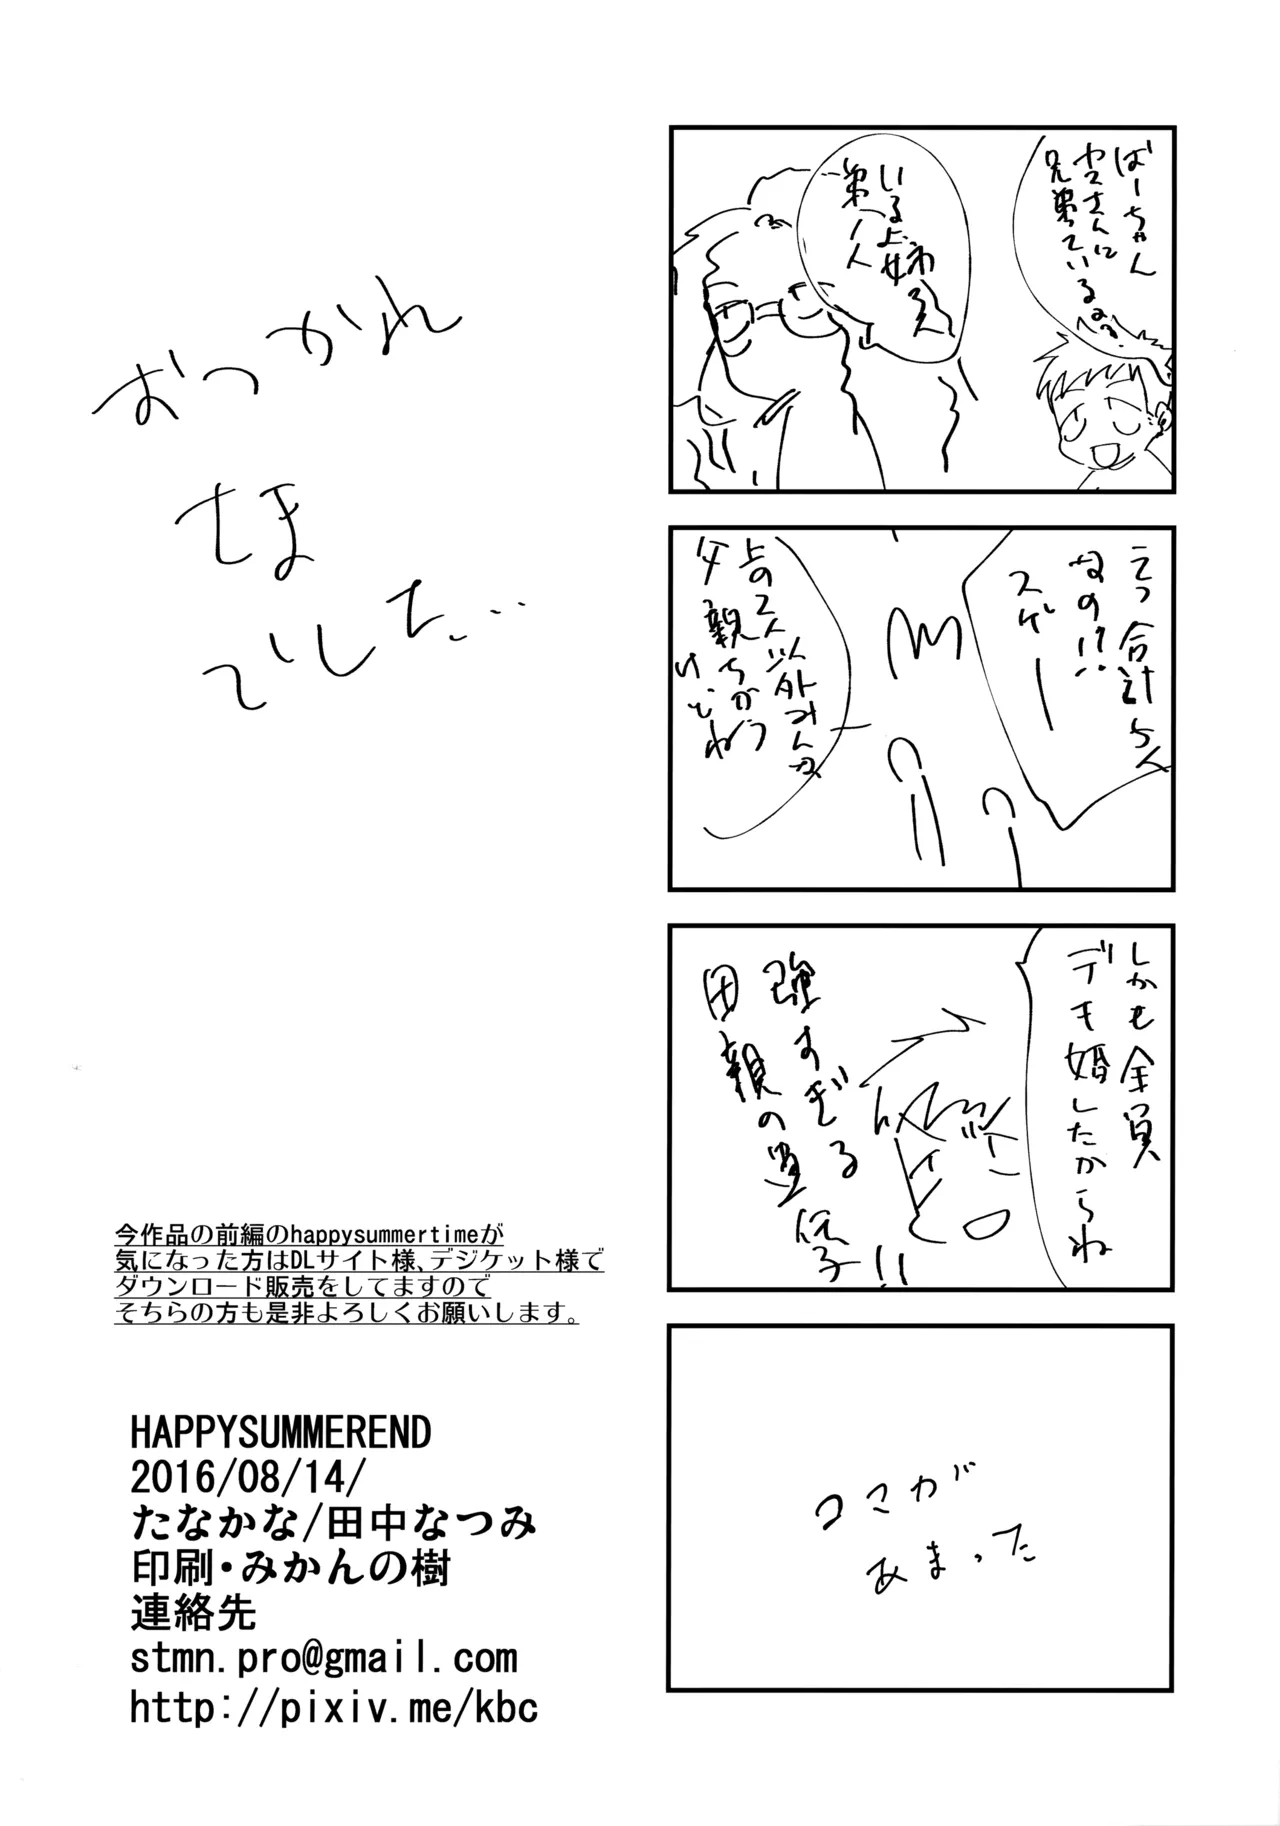 ばーちゃん
ヤスさんに
兄弟っているの?
いる上姉え
弟一人
えっ合計5人
なの!?
スゲー
上の2人以外みんな
父親ちがう
けどね
しかも全員
デキ婚したからね
強すぎる
母親の遺伝子!!
コマが
あまった
おつかれ
さま
でした…
今作品の前編のhappysummertimeが
気になった方はDLサイト様、デジケット様で
ダウンロード販売をしてますので
そちらの方も是非よろしくお願いします。
HAPPYSUMMEREND
2016/08/14/
たなかな/田中なつみ
印刷・みかんの樹
連絡先
stmn.pro@gmail.com
http://pixiv.me/kbc